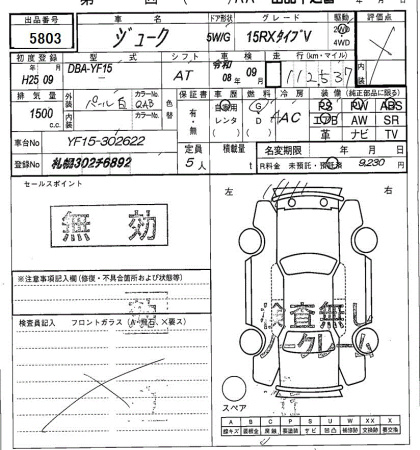 出品番号 車名 ドア形状 グレード 駆動 評価点
5803 ジューク 5W/G 15RXタイプV 2WD 4WD
初度登録 型式 シフト 車検 走行(km・マイル) 内装
H25 09 DBA-YF15 AT 令和 08年 09月 112,537
排気量 外装 カラーNo. 色替 保証書 車歴 燃料 冷房 装備(純正部品に限る)
1500 cc パール白 QAB 有・無 自家用 G AAC PS PW ABS
内装 カラーNo. レンタ D エアB AW SR
革 ナビ TV
車台No YF15-302622 定員 積載量 名変期限 年 月 日
登録No 札幌302チ6892 5人 t R料金 未預託・預託済 9,230円
セールスポイント
無効
左 右
※注意事項記入欄(修復・不具合箇所および状態等)
検査無し
ノークレーム
検査員記入 フロントガラス(A・飛石、×要ス)
スペア
A B C P S U W X XX
線キズ 要板金 腐蝕 要塗装 サビ 凹凸 補修跡 交換跡 要交換